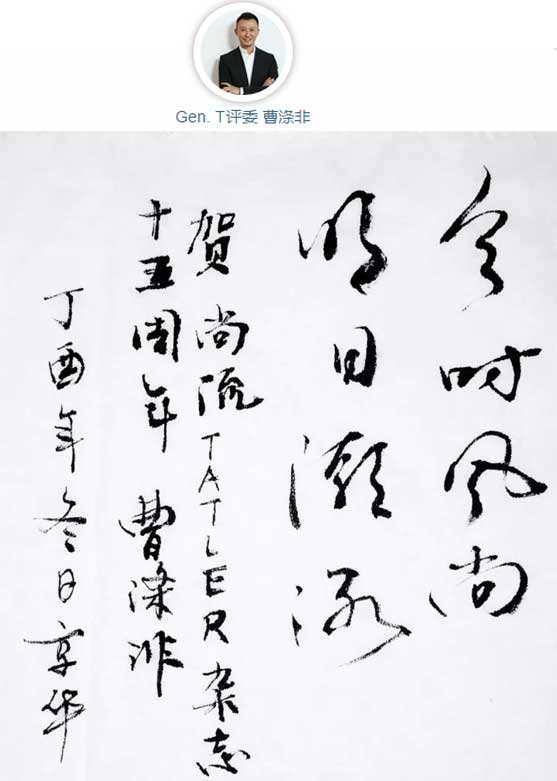 Gen. T评委 曹涤非
今时风尚
明日潮流
贺 尚流TATLER杂志
十五周年 曹涤非
丁酉年冬日京华